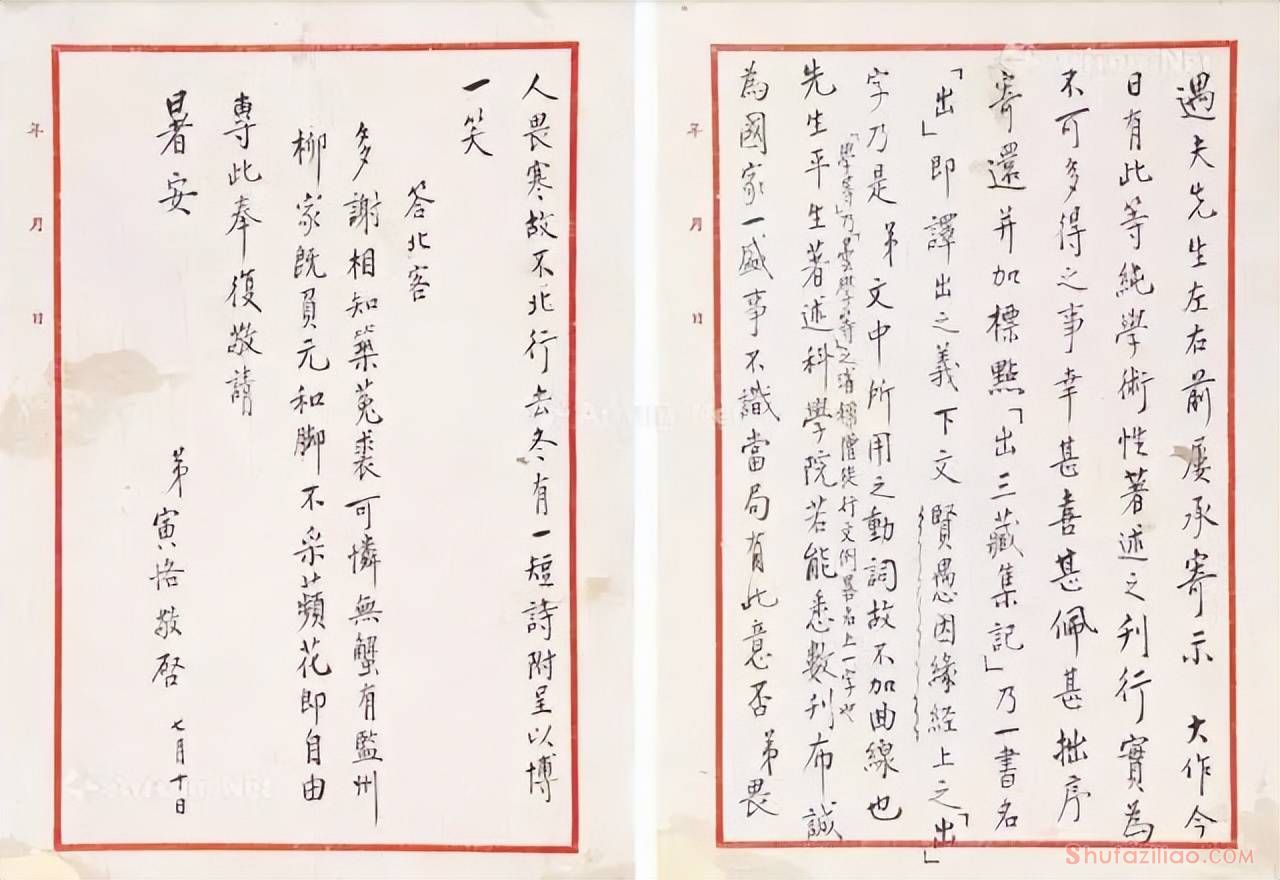 遇夫先生左右前屡承寄示 大作今
日有此等純學術性著述之刋行實為
不可多得之事幸甚喜甚佩甚拙序
寄還并加標點「出三藏集記」乃一書名
「出」即譯出之義下文賢愚因緣経上之「出」
字乃是弟文中所用之動詞故不加曲線也
「學等」乃「曇學等」之省稱僧徒行文例畧名上一字也
先生平生著述科學院若能悉數刋布誠
為國家一盛事不識當局有此意否弟畏
人畏寒故不北行去冬有一短詩附呈以博
一笑
答北客
多謝相知築菟裘可憐無蟹有監州
柳家既負元和脚不采蘋花即自由
專此奉復敬請
暑安
弟寅恪敬啓 七月十日
年 月 日
年 月 日
Shufaziliao.COM